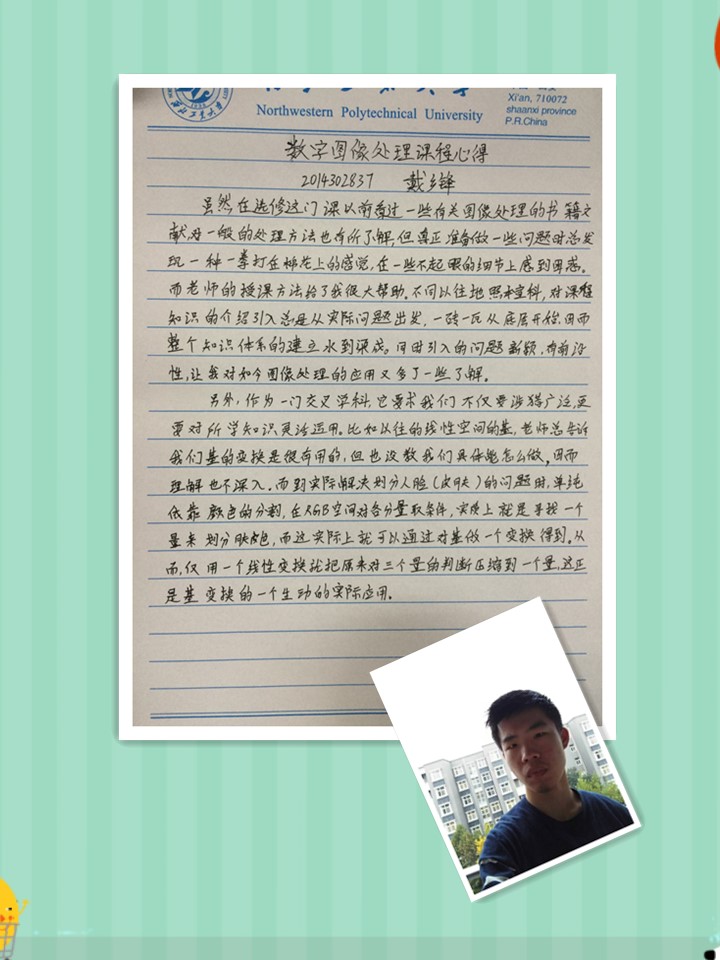 Northwestern Polytechnical University
Xi'an, 710072
shaanxi province
P.R.China
数字图像处理课程心得
2014302837 戴乡锋
虽然在选修这门课以前看过一些有关图像处理的书籍文
献,对一般的处理方法也有所了解,但真正准备做一些问题时总发
现一种一拳打在棉花上的感觉,在一些不起眼的细节上感到困惑。
而老师的授课方法给了我很大帮助。不同以往地照本宣科,对课程
知识的介绍引入总是从实际问题出发,一砖一瓦从底层开始,因而
整个知识体系的建立水到渠成。同时引入的问题新颖,有前沿
性,让我对如今图像处理的应用又多了一些了解。
另外,作为一门交叉学科,它要求我们不仅要涉猎广泛,更
要对所学知识灵活运用。比如以往的线性空间的基,老师总告诉
我们基的变换是很有用的,但也没教我们具体能怎么做,因而
理解也不深入。而到实际解决划分人脸(皮肤)的问题时,单纯
依靠颜色的分割,在RGB空间对各分量取条件,实际上就是寻找一个
量来划分肤色,而这实际上就可以通过对基做一个变换得到。从
而,仅用一个线性变换就把原来对三个量的判断压缩到一个量,这正
是基变换的一个生动的实际应用。